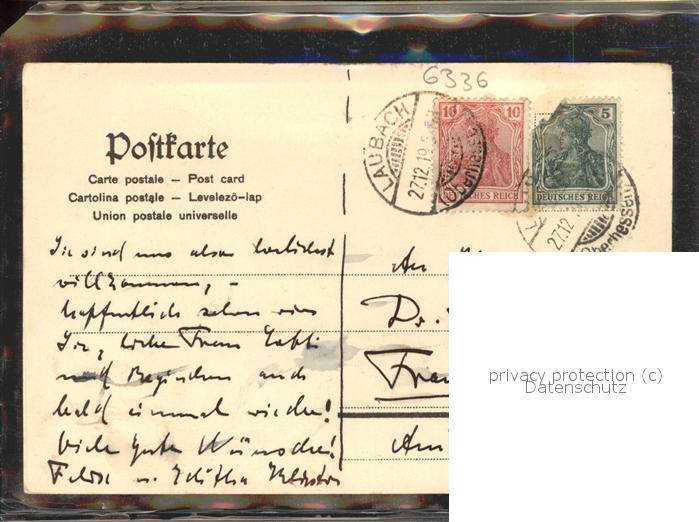 6336
LAUBACH
27.12.19
Oberhessen
10 10
DEUTSCHES REICH
5
DEUTSCHES REICH
27.12
Oberhessen
Postkarte
Carte postale – Post card
Cartolina postale – Levelező-lap
Union postale universelle
Sie sind uns also herzlichst
willkommen, –
hoffentlich sehen wir
Sie, liebe Frau
und auch
bald einmal wieder!
Viele gute Wünsche!
u. Editha
An
Dr.
Fran
privacy protection (c)
Datenschutz